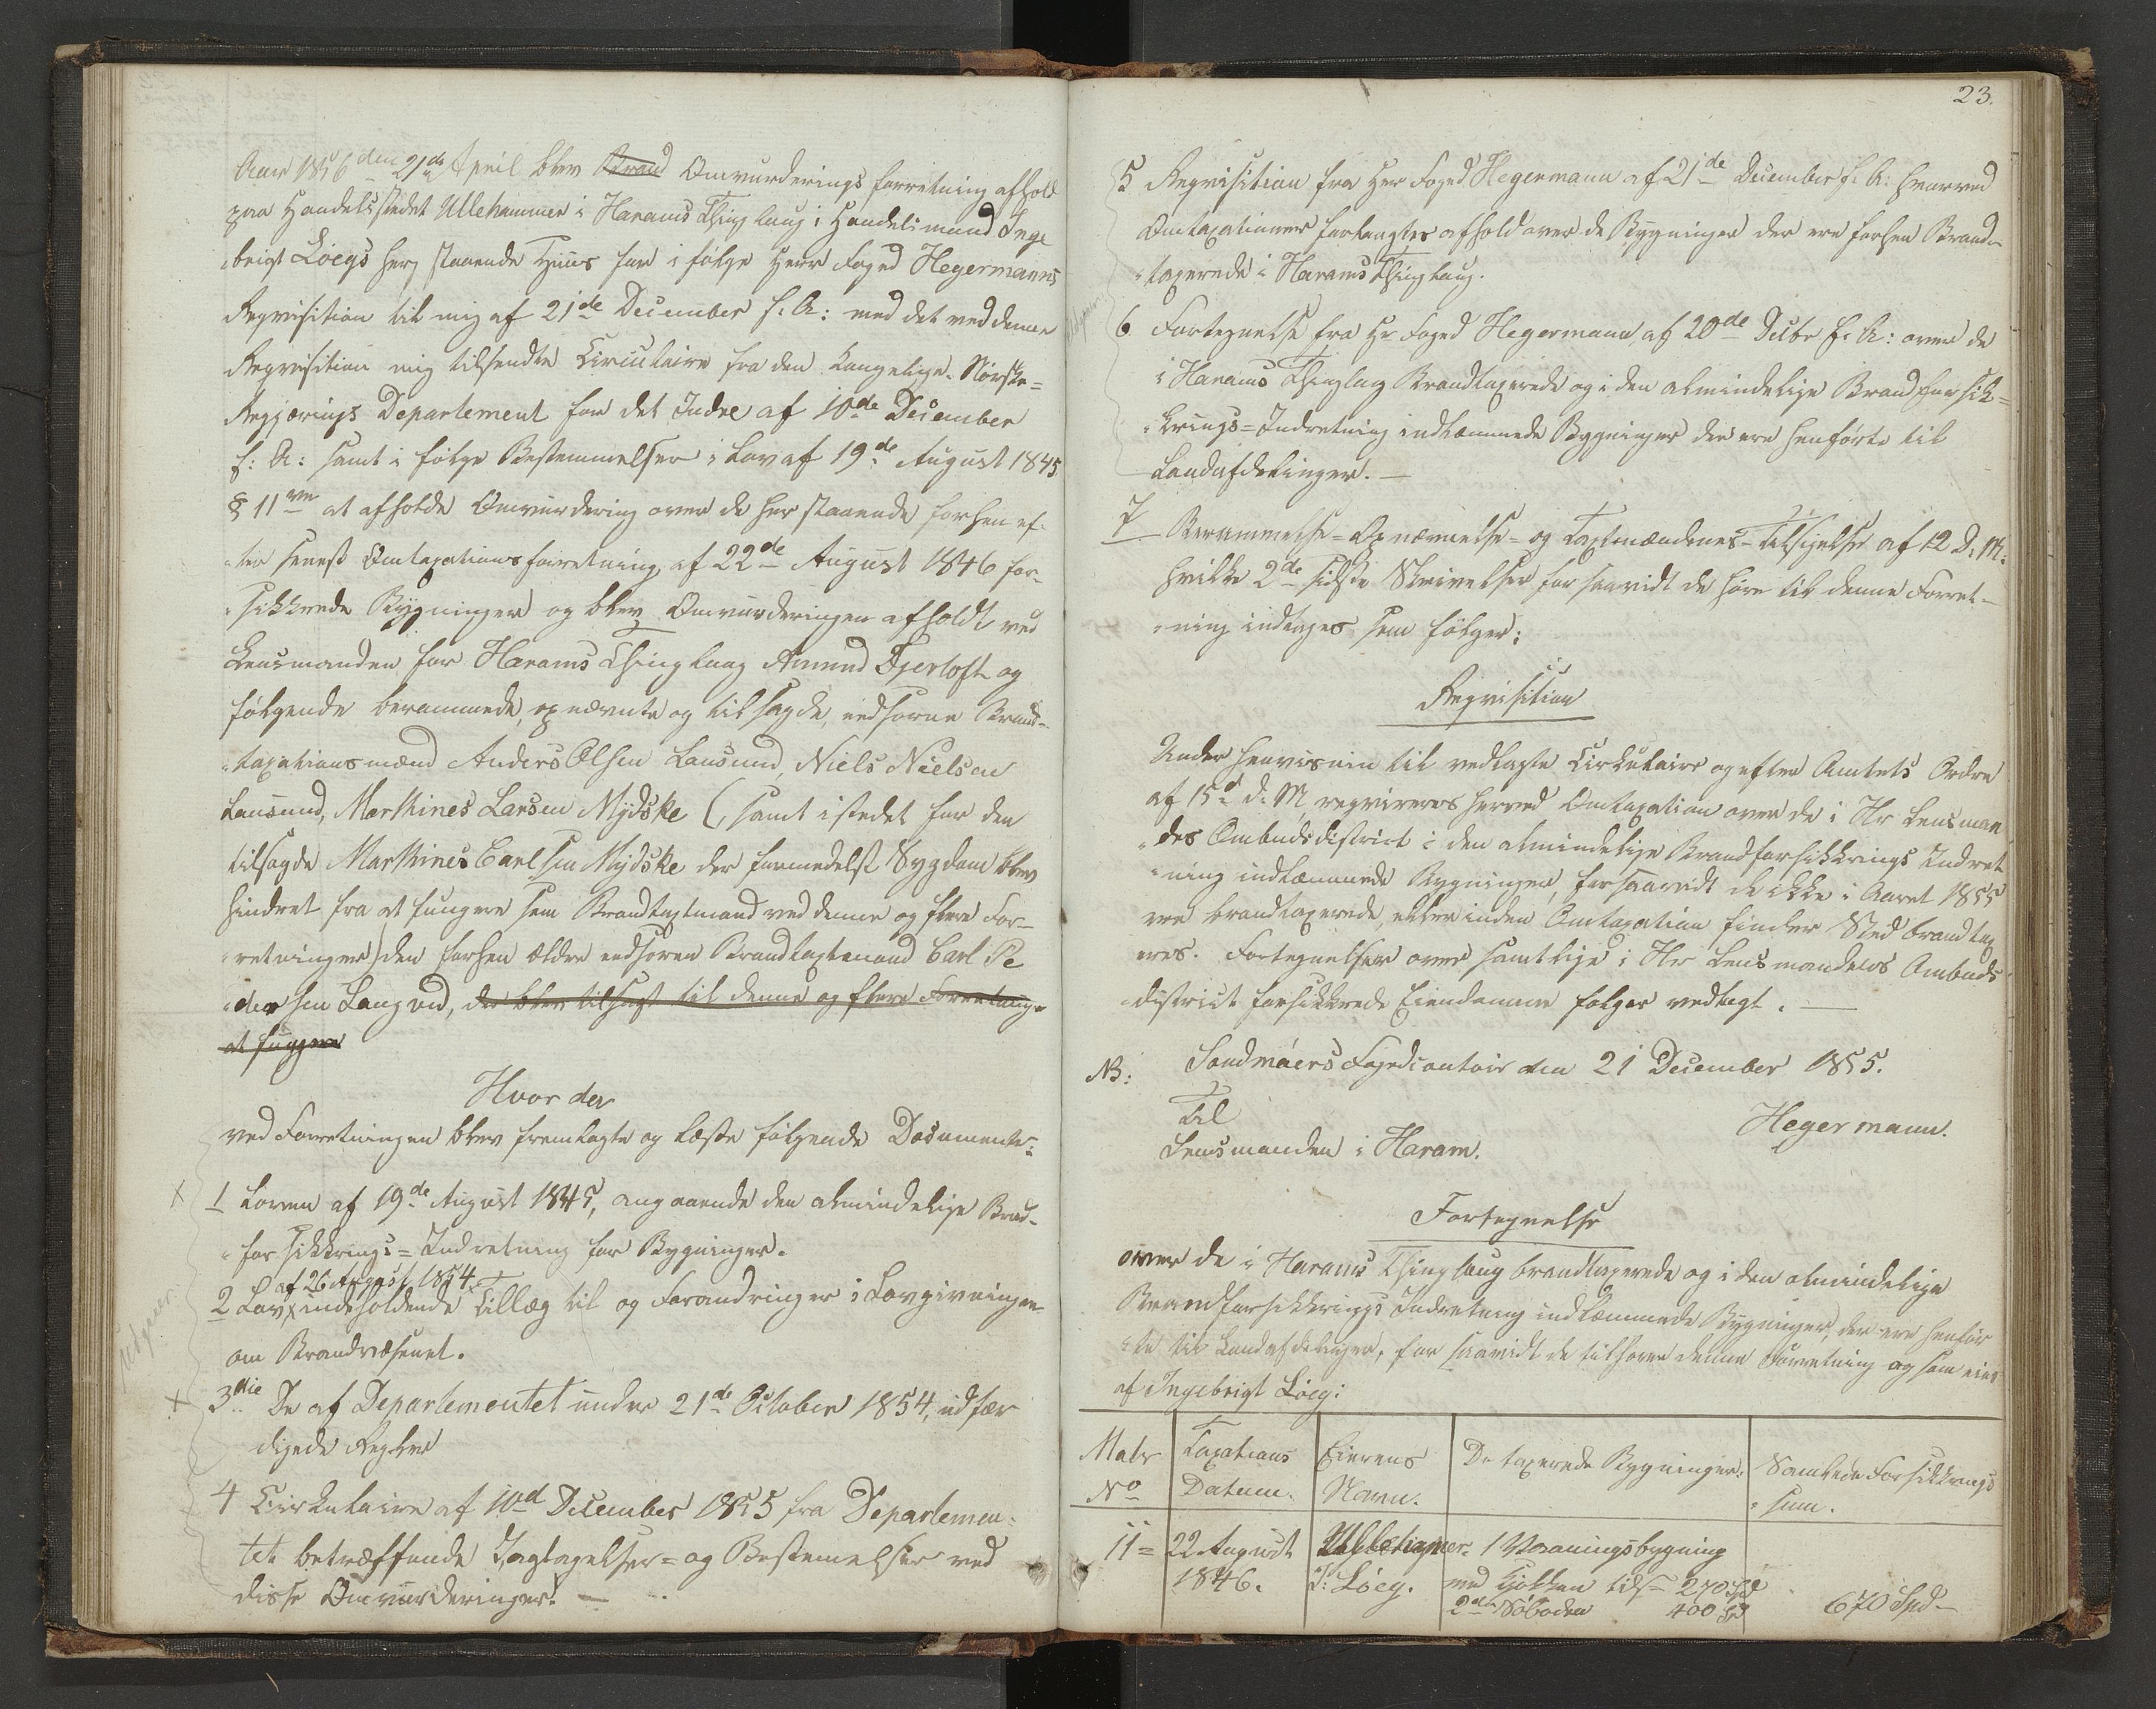 Aar 1856 den 21de April blev Brand Omvurderings forretning afhold
paa Handelsstedet Ullehammer i Harams Thinglaug i Handelsmand Inge
"brigt Löegs her staaende Huus for i følge Herr Foged Hegermanns
Reqvisition til mig af 21de December f. A: med det ved denne
Reqvisition mig tilsendte Circulaire fra den kongelige Norske=
Regjerings Departement for det Indre af 10de December
f: A: samt i følge Bestemmelser i Lov af 19de August 1845
§ 11te at afholde Omvurdering over de her staaende forhen ef-
"ter seneste Omtaxationsforretning af 22de August 1846 for-
"sikkrede Bygninger og blev Omvurderingen afholdt ved
Lensmanden for Harams Thinglaug Amund Fjertoft og
følgende berammede, opnævnte og tilsagde, eedsorne Brand-
"taxationsmænd Anders Olsen Lausund, Niels Nielsen
Lausund, Marthines Larsen Mydske (, samt istedet for den
tilsagde Marthines Carlsen Mydske der formedelst Sygdom blev
hindret fra at fungere som Brandtaxtmand ved denne og flere For-
"retninger) den forhen ældre eedsoren Brandtaxtmand Carl Pe
"dersen Langved, der blev tilsagt til denne og flere Forretninger
at fungere
Hvor der
ved Forretningen blev fremlagte og læste følgende Documenter:
1 Loven af 19de August 1845, angaaende den almindelige Brand-
"forsikkrings=Indretning for Bygninger.
af 26 August 1854
2 Lov, indeholdende Tillæg til og Forandringer i Lovgivningen
om Brandvæsenet.
3die De af Departementet under 21de October 1854, udfær
digede Regler
4 Cirkulaire af 10de December 1855 fra Departemen-
tet betræffende Iagtagelser= og Bestemelser ved
disse Omvurderinger. —
23.
5 Reqvisition fra Herr Foged Hegermann af 21de December f. A: hvorved
Omtaxationer forlangtes afhold over de Bygninger der ere forhen Brand-
"taxerede i Harams Thinglaug.
6 Fortegnelse fra Hr Foged Hegermann af 20de Decbr f. A: over de
i Harams Thinglag Brandtaxerede og i den almindelige Brandforsik=
"krings=Indretning indlæmmede Bygninger der ere henførte til
Landafdelinger. —
7 Berammelse= Opnævnelse= og Taxtmændenes=Tilsigelse af 12 D. M:
hvilke 2de sidste Skrivelser forsaavidt de høre til denne Forret-
"ning indtages som følger:
Reqvisition
Under henvisning til vedlagte Cirkulaire og efter Amtets Ordre
af 15de d. M. reqvireres herved Omtaxation over de i Hr Lensman
"des Ombudsdistrict i den almindelige Brandforsikkrings Indret
"ning indlæmmede Bygninger, forsaavidt de ikke i Aaret 1855
ere brandtaxerede, eller inden Omtaxation finder Sted brandtax
eres. Fortegnelser over samtlige i Hr Lensmandens Ombuds
district forsikkrede Eiendomme følger vedlagt. —
NB: Søndmöers Fogedcontoir den 21 December 1855.
Til
Hegermann.
Lensmanden i Haram.
Fortegnelse
over de i Harams Thinglaug brandtaxerede og i den almindelige
Brandforsikkrings Indretning indlæmmede Bygninger, der ere henför
"te til Landafdelinger, for saavidt de tilhører denne Forretning og som eies
af Ingebrigt Löeg:
Matr No
Taxations Datum.
Eierens Navn.
De taxerede Bygninger.
Samlede Forsikkrings "sum.
11= 22 August Ullehamer. 1 Vaaningsbygning
1846. I: Löeg. med Kjøkken tils= 270 Spd
2den Søboden 400 Spd 670 Spd